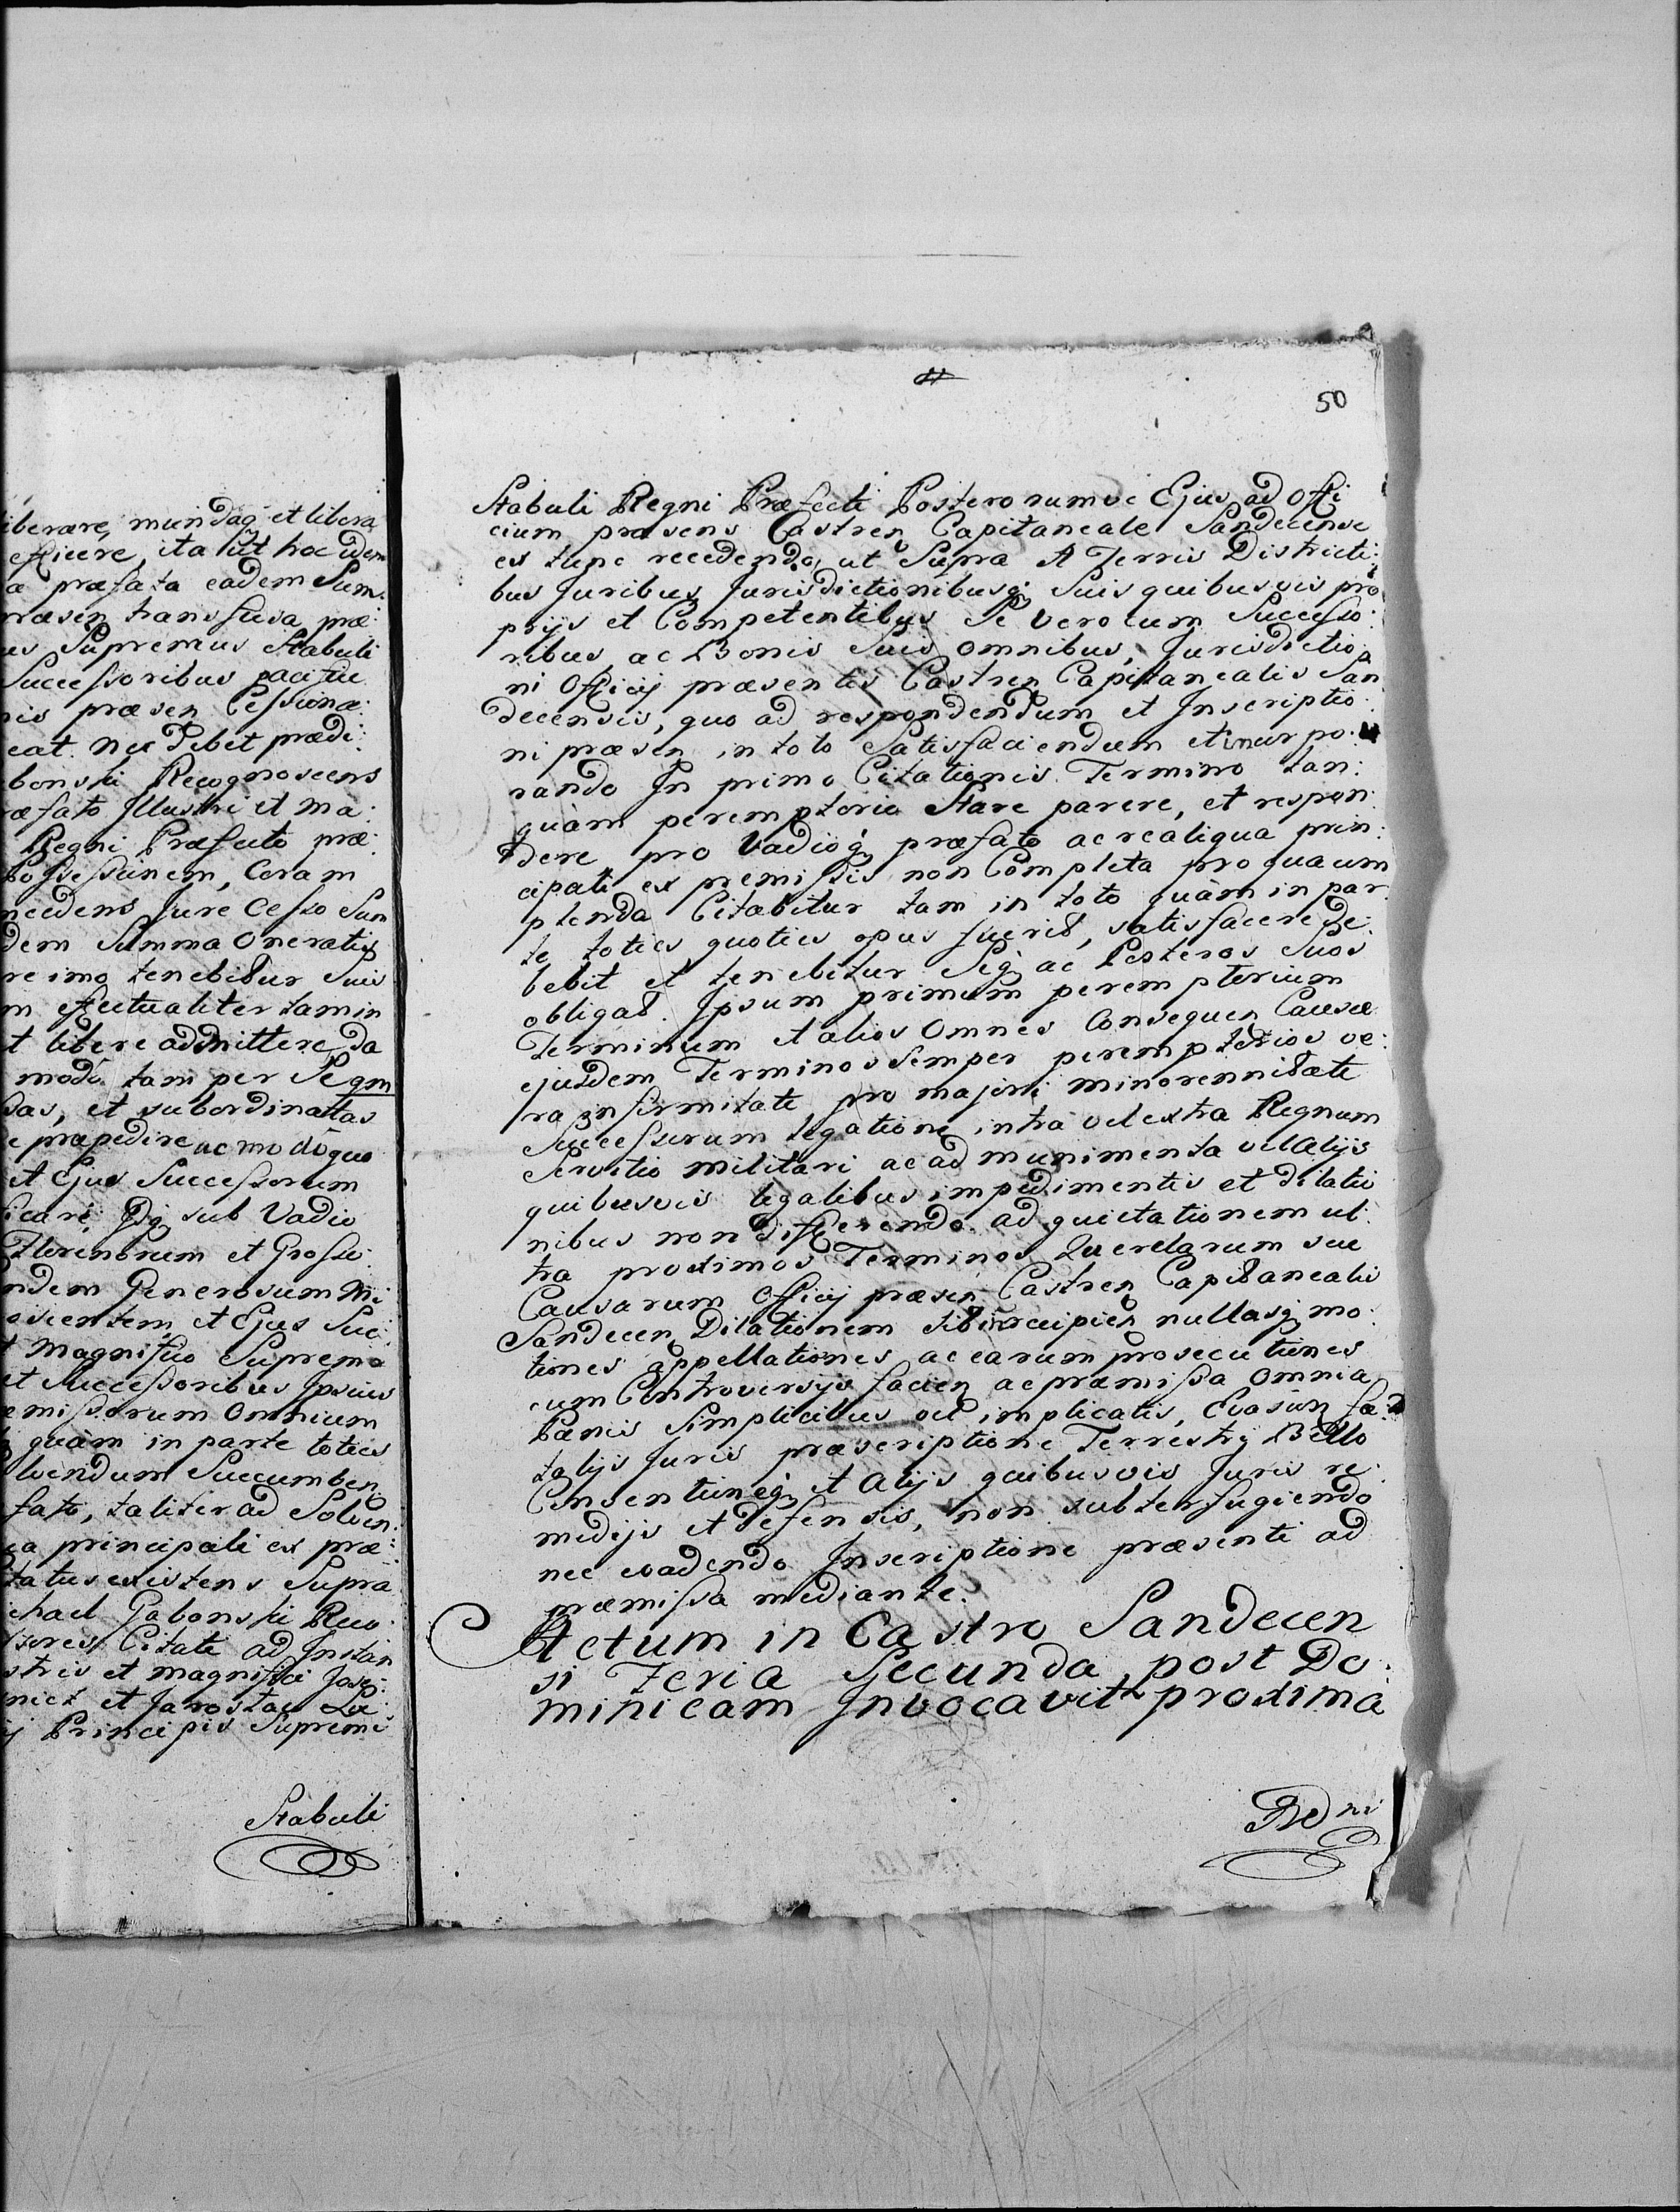 iberare, mundaq; et libera
efficere, ita ut hoc idem
a præfata eadem Sum:
præsen transfusa præ:
us Supremus Stabuli
Successoribus pacifice
nis præsen Cessionæ:
eat nec debet prædi:
bonski Recognoscens
æfato Illustri et Ma:
Regni Præfecto præ:
Possessionem, Coram
ncedens Jure Cesso Sum
dem Summa Oneratis
re imo tenebitur Suis
m effectualiter tam in
t libere admittere, Da
modo tam per Segm
sas, et subordinattas
e præpedire ac modo quo
et Ejus Successorum
icari Idq; sub Vadio
Florenorum et Grosso:
ndem Generosum Mi:
oscentem et Ejus Suc:
t Magnifico Supremo
et Successoribus Ipsius
emissorum Omnium
quàm in parte toties
lvendum Succumben
fato, taliter ad Solven:
ea principali ex præ:
tatus existens Supra
chael Gabonski Reco:
ssores Citati ad Instan
stris et Magnifici Jose:
nicz et Jarostau Lu:
ij Principis Supremi
Stabuli
50
Stabuli Regni Præfecti Posterorumve Ejus ad Offi
cium præsens Castren Capitaneale Sandecense
ex tunc recedendo, ut Supra A Terris Districti:
bus Juribus Jurisdictionibusq; Suis quibusvis pro
prijs et Competentibus Se vero cum Successo:
ribus ac Bonis Suis omnibus, Jurisdictio
ni Officij præsentis Castren Capitanealis San
decensis, quo ad respondendum et Inscriptio:
ni præsen in toto Satisfaciendum et incorpo:
rando In primo Citationis Termino tan:
quàm peremptorio Stare parere, et respon:
dere pro Vadioq; præfato ac re aliqua prin:
cipali ex premissis non Completa pro qua cum
plenda Citabitur tam in toto quàm in par
te toties quoties opus fuerit, satisfacere De:
bebit et tenebitur Seq; ac Posteros Suos
obligat. Ipsum primum peremptorium
Terminum et alios Omnes Consequen Causæ
ejusdem Terminos semper peremptorios ve:
ra Infirmitate, pro majori minorennitate
Successorum legatione intra vel extra Regnum
Servitio Militari ac ad munimenta vel Alijs
quibusvis legalibus impedimentis et dilatio
nibus non differendo. ad quietationem ul:
tra proximos Terminos Querelarum seu
Causarum Officij præsen Castren Capitanealis
Sandecen Dilationem sibi recipien nullasq; mo:
tiones appellationes ac earum prosecutiones
cum Controversijs facien ac præmissa Omnia
Pænis Simplicibus vel implicatis, Evasion fa:
talijs Juris præscriptione Terrestrj Bello
Consentioneq; et Alijs quibusvis Juris re:
medijs et Defensis, non subterfugiendo
nec evadendo Inscriptione præsenti ad
præmissa mediante.
Actum in Castro Sandecen
si Feria Secunda post Do:
minicam Invocavit proxima